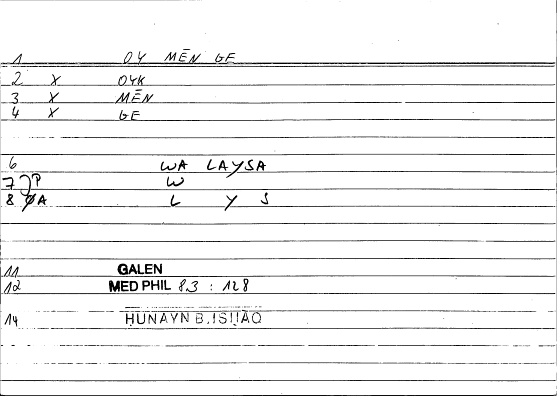 1 OY MĒN GE
2 X OYK
3 X MĒN
4 X GE
6 WA LAYSA
7 P W
8 ØA L Y S
11 GALEN
12 MED PHIL 8.3 : 128
14 ḤUNAYN B. ISḤĀQ